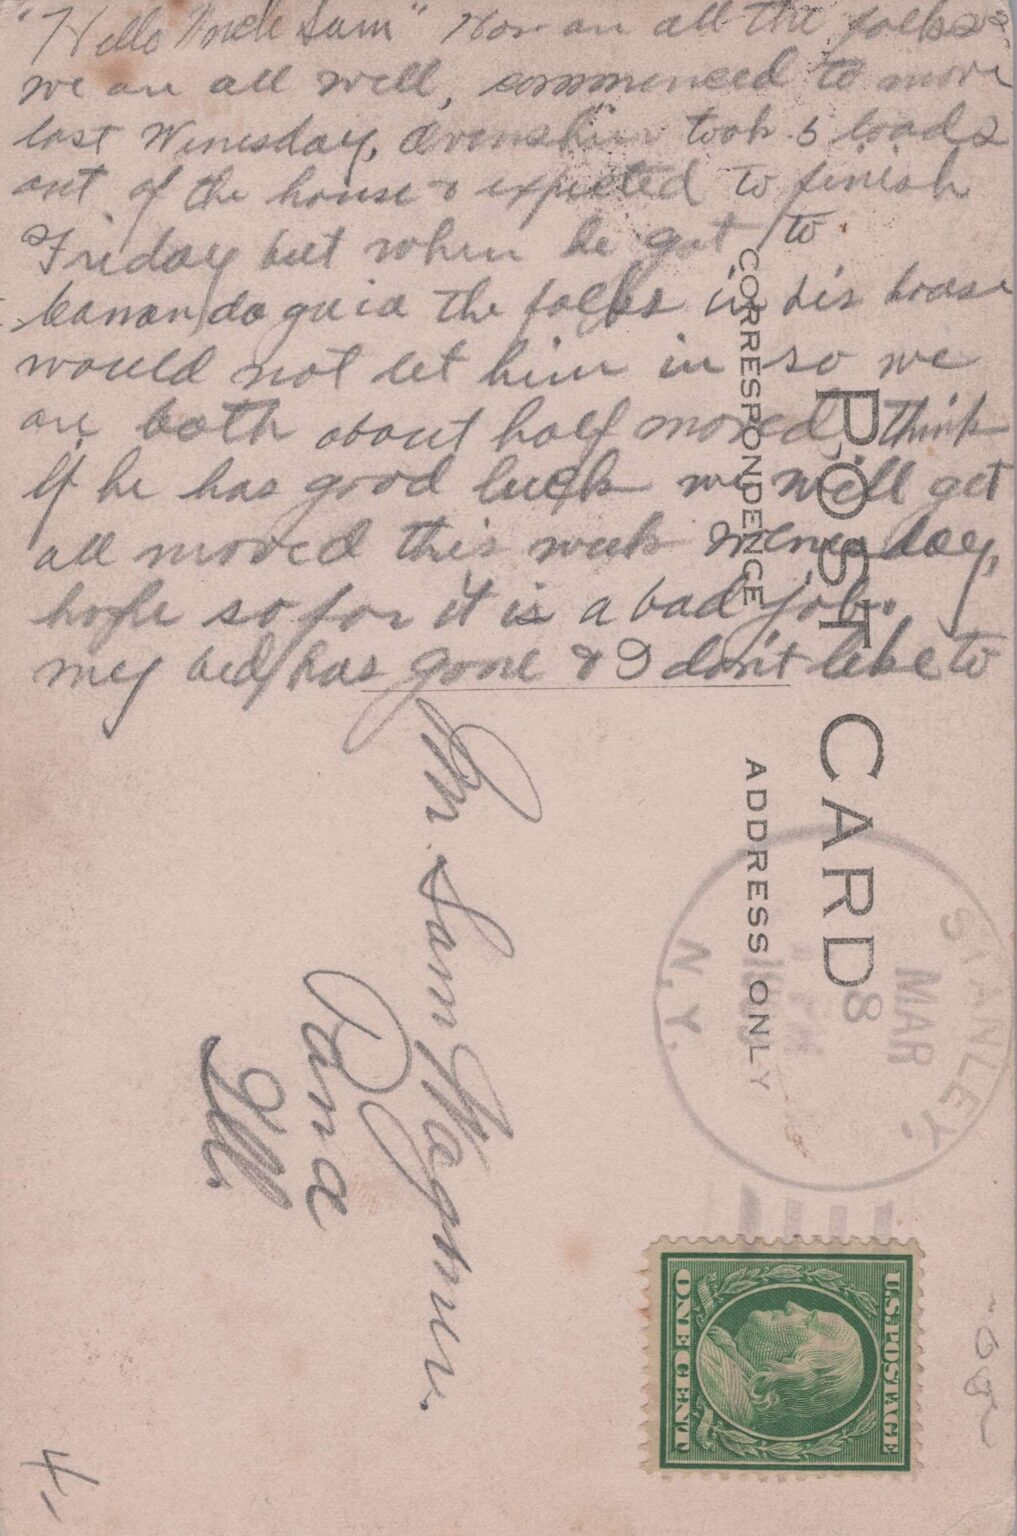 "Hello Uncle Sam" How are all the folks?
we are all well, commenced to move
last Wenesday, took 5 loads
out of the house & expected to finish
Friday but when he got to
Canandaguia the folks in his house
would not let him in so we
are both about half moved, think
if he has good luck we will get
all moved this week Wenesday,
hope so for it is a bad job.
my bed has gone & I don't like to
CORRESPONDENCE
POST CARD
ADDRESS ONLY
STANLEY.
MAR
8
N.Y.
U.S. POSTAGE
ONE CENT
Mr. Sam Wagner.
Dana
Ill.
4-